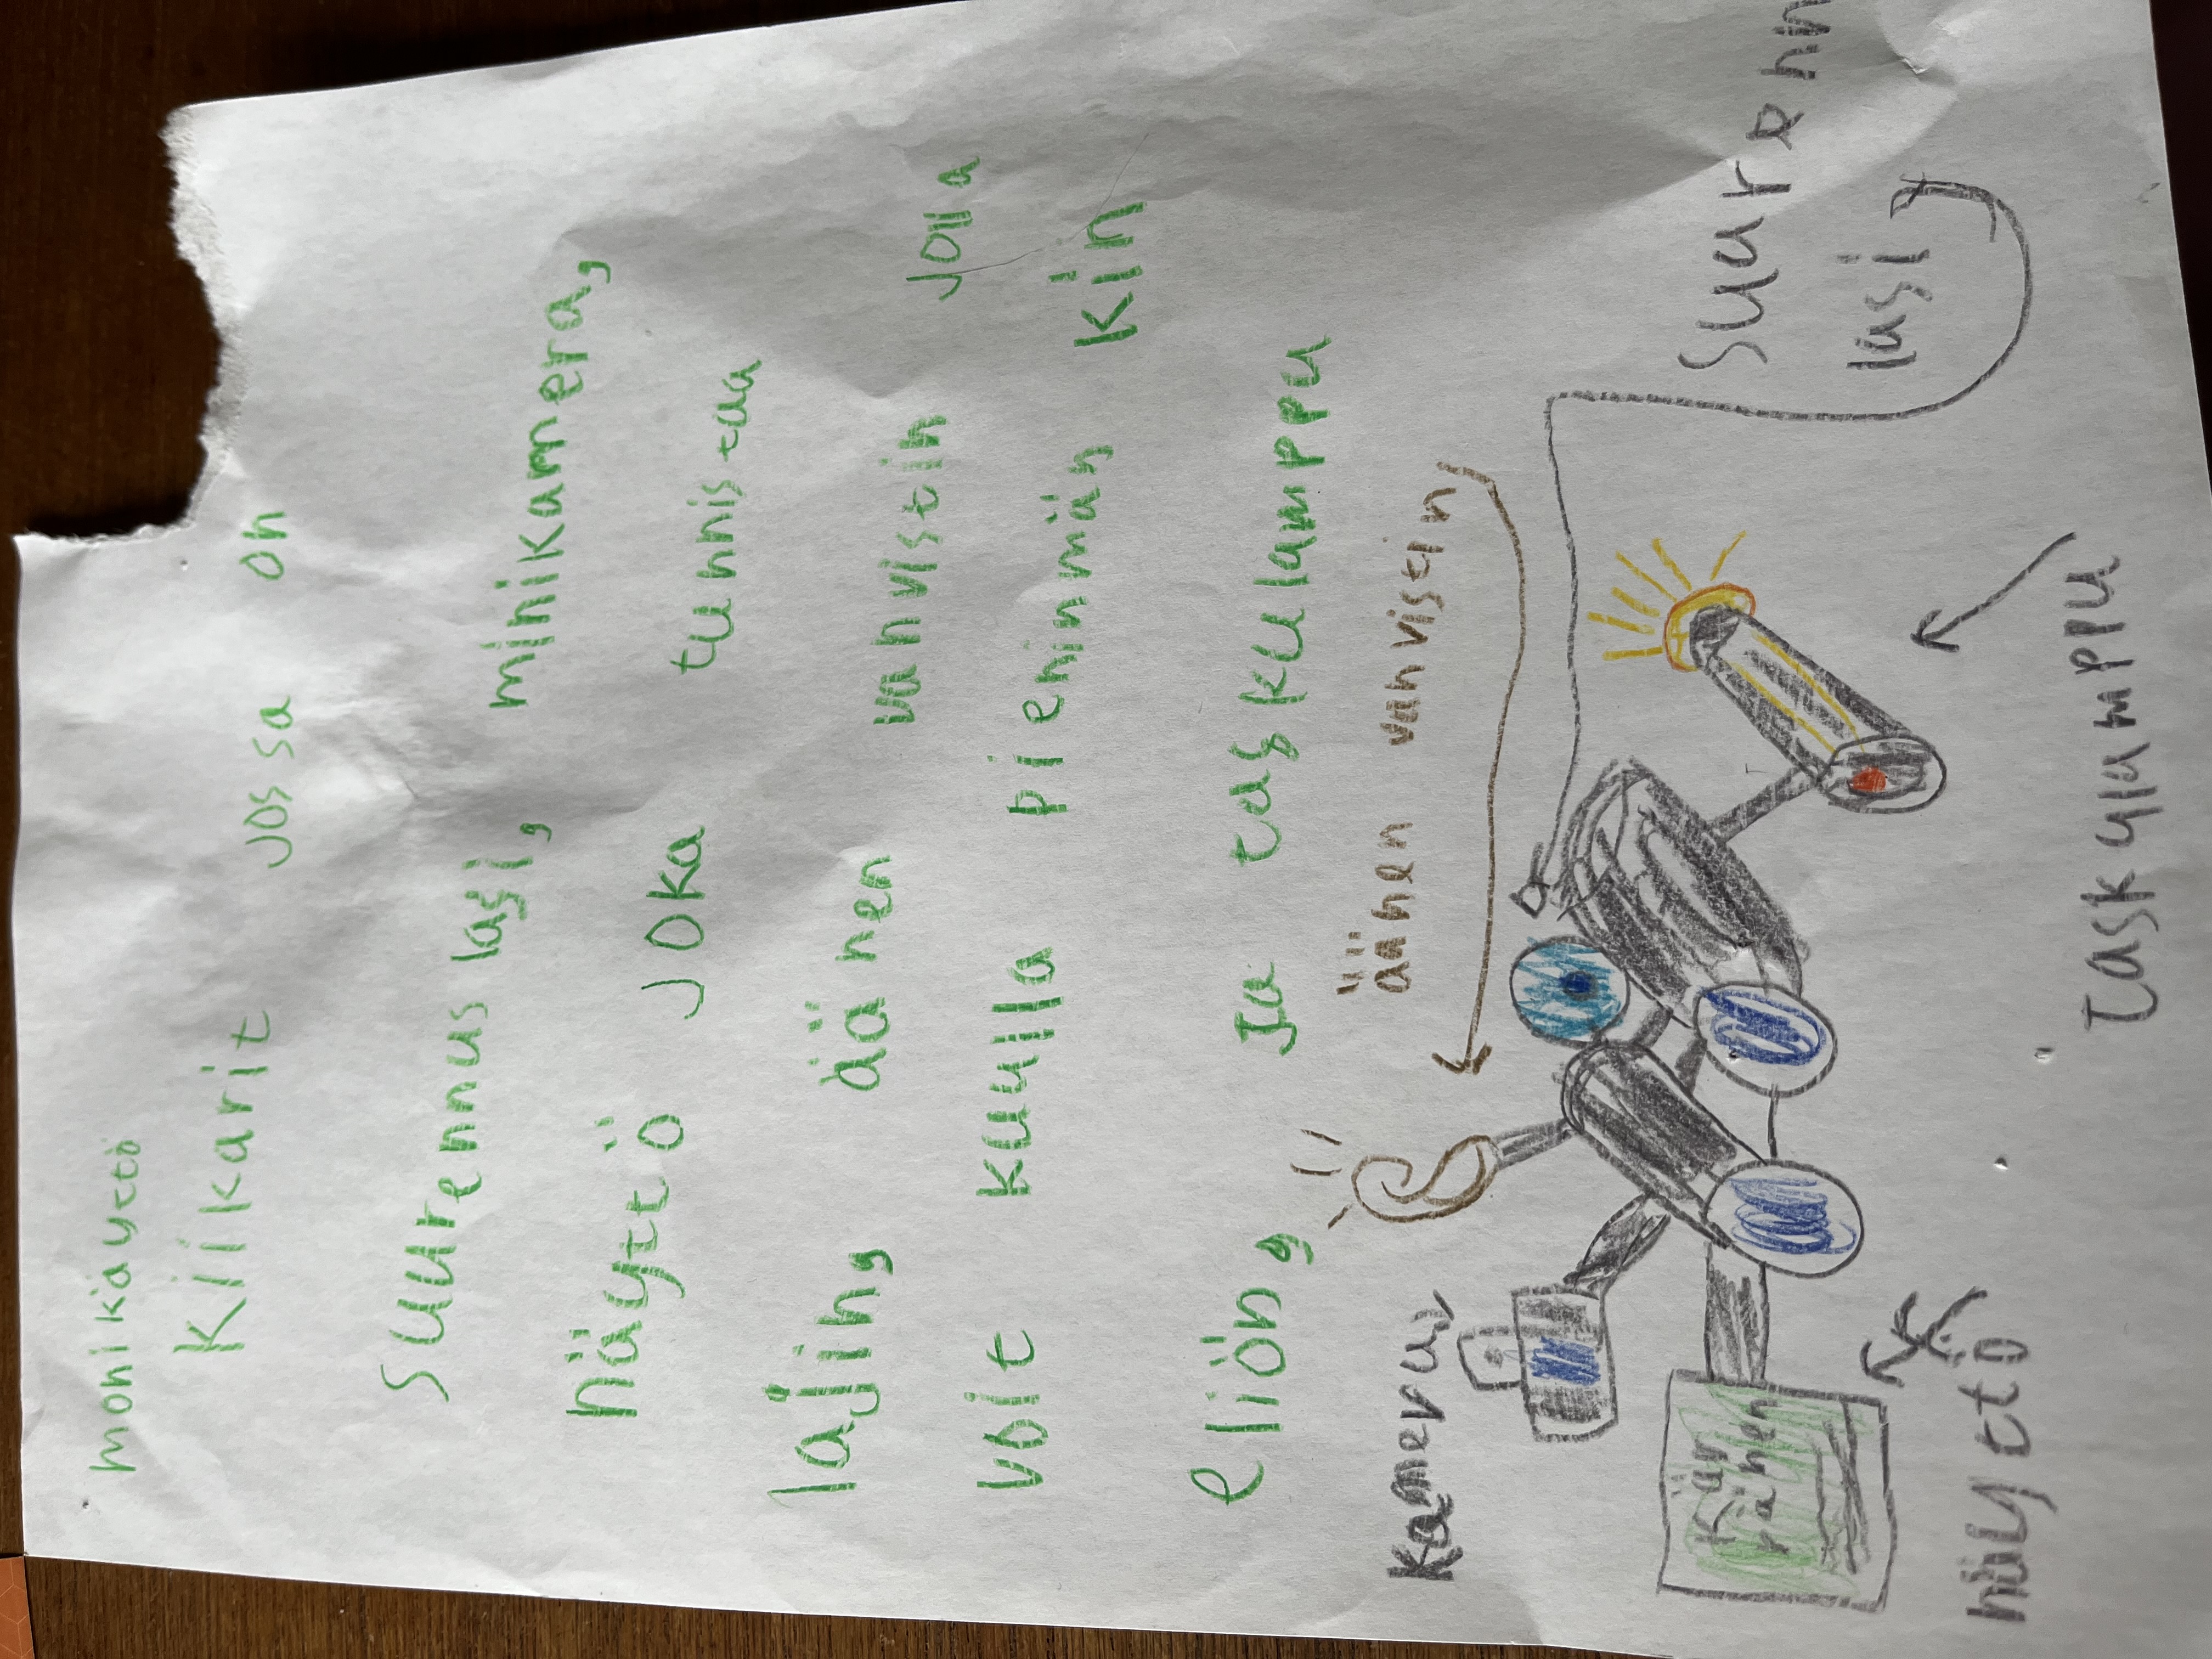 monikäyttö
Kiikarit jossa on
suurennus lasi, minikamera,
näyttö joka tunnistaa
lajin, äänen vahvistin jolla
voit kuulla pienimmän kin
eliön, ja taskulamppu
äänen vahvistin
suurennus
lasi
Kamera
Kär
pänen
näyttö
taskulamppu